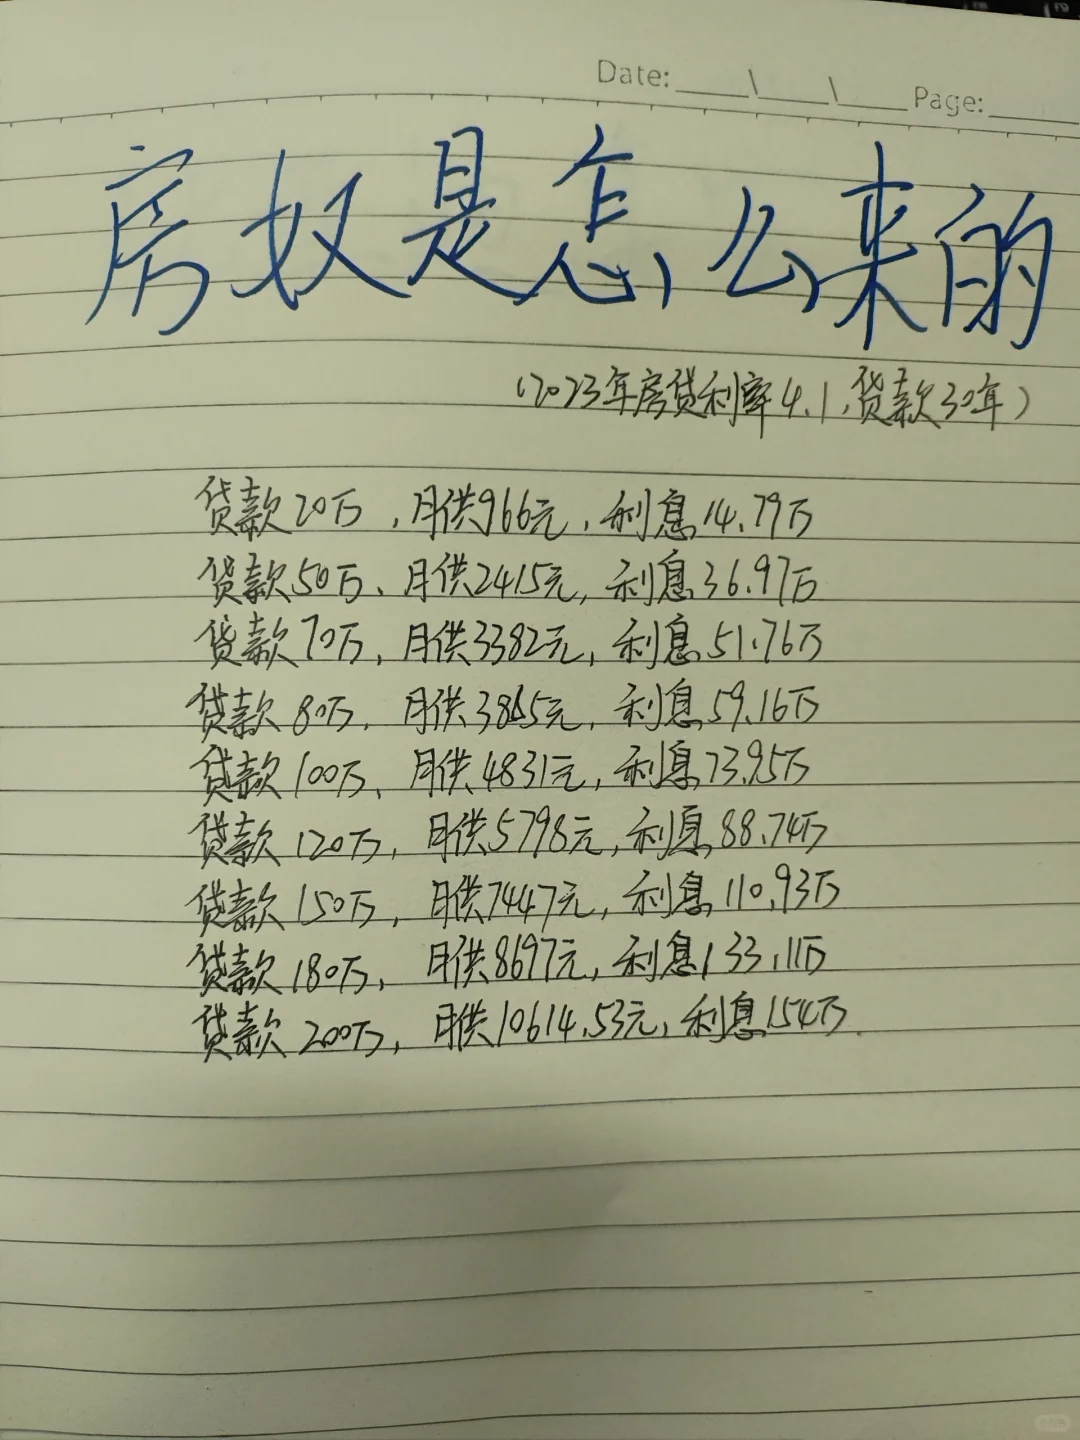 Date: ____\____\____ Page: ____
房奴是怎么来的
(2023年房贷利率4.1,贷款30年)
贷款20万,月供966元,利息14.79万
贷款50万、月供2415元,利息36.97万
贷款70万,月供3382元,利息51.76万
贷款80万,月供3865元,利息59.16万
贷款100万、月供4831元,利息73.95万
贷款120万,月供5798元,利息88.74万
贷款150万,月供7447元,利息110.93万
贷款180万,月供8697元,利息133.11万
贷款200万,月供10614.53元,利息154万.